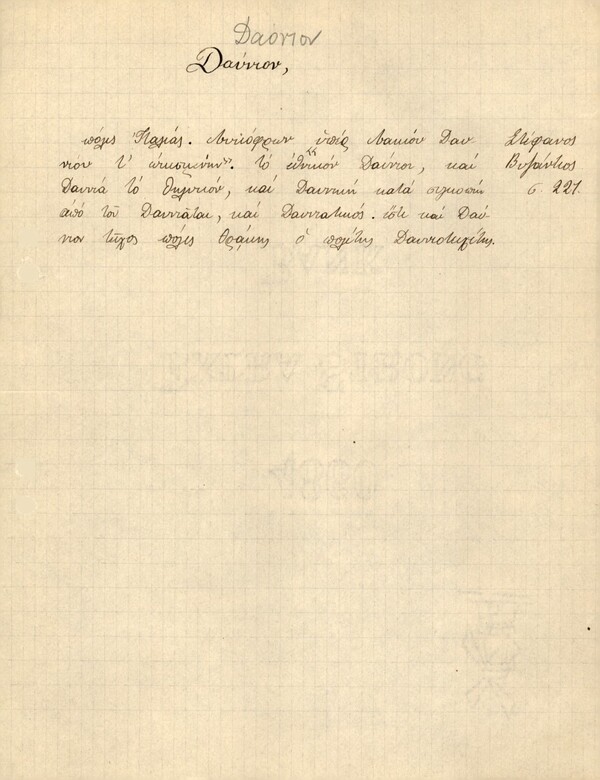 Δαόνιον
Δαύνιον,
πόλις Ἰταλίας. Λυκόφρων „ὑπὲρ Λατίνων Δαυ
νίου τ' ᾠκισμένην". τὸ ἐθνικὸν Δαύνιοι, καὶ
Δαυνιὰ τὸ θηλυκόν, καὶ Δαυνικὴ κατὰ συγκοπήν
ἀπὸ τοῦ Δαυνιᾶται, καὶ Δαυνιατικός. ἔστι καὶ Δαύ
νιον τεῖχος πόλις Θρᾴκης ὁ πολίτης Δαυνιοτειχίτης.
Στέφανος
Βυζάντιος
σ. 221.